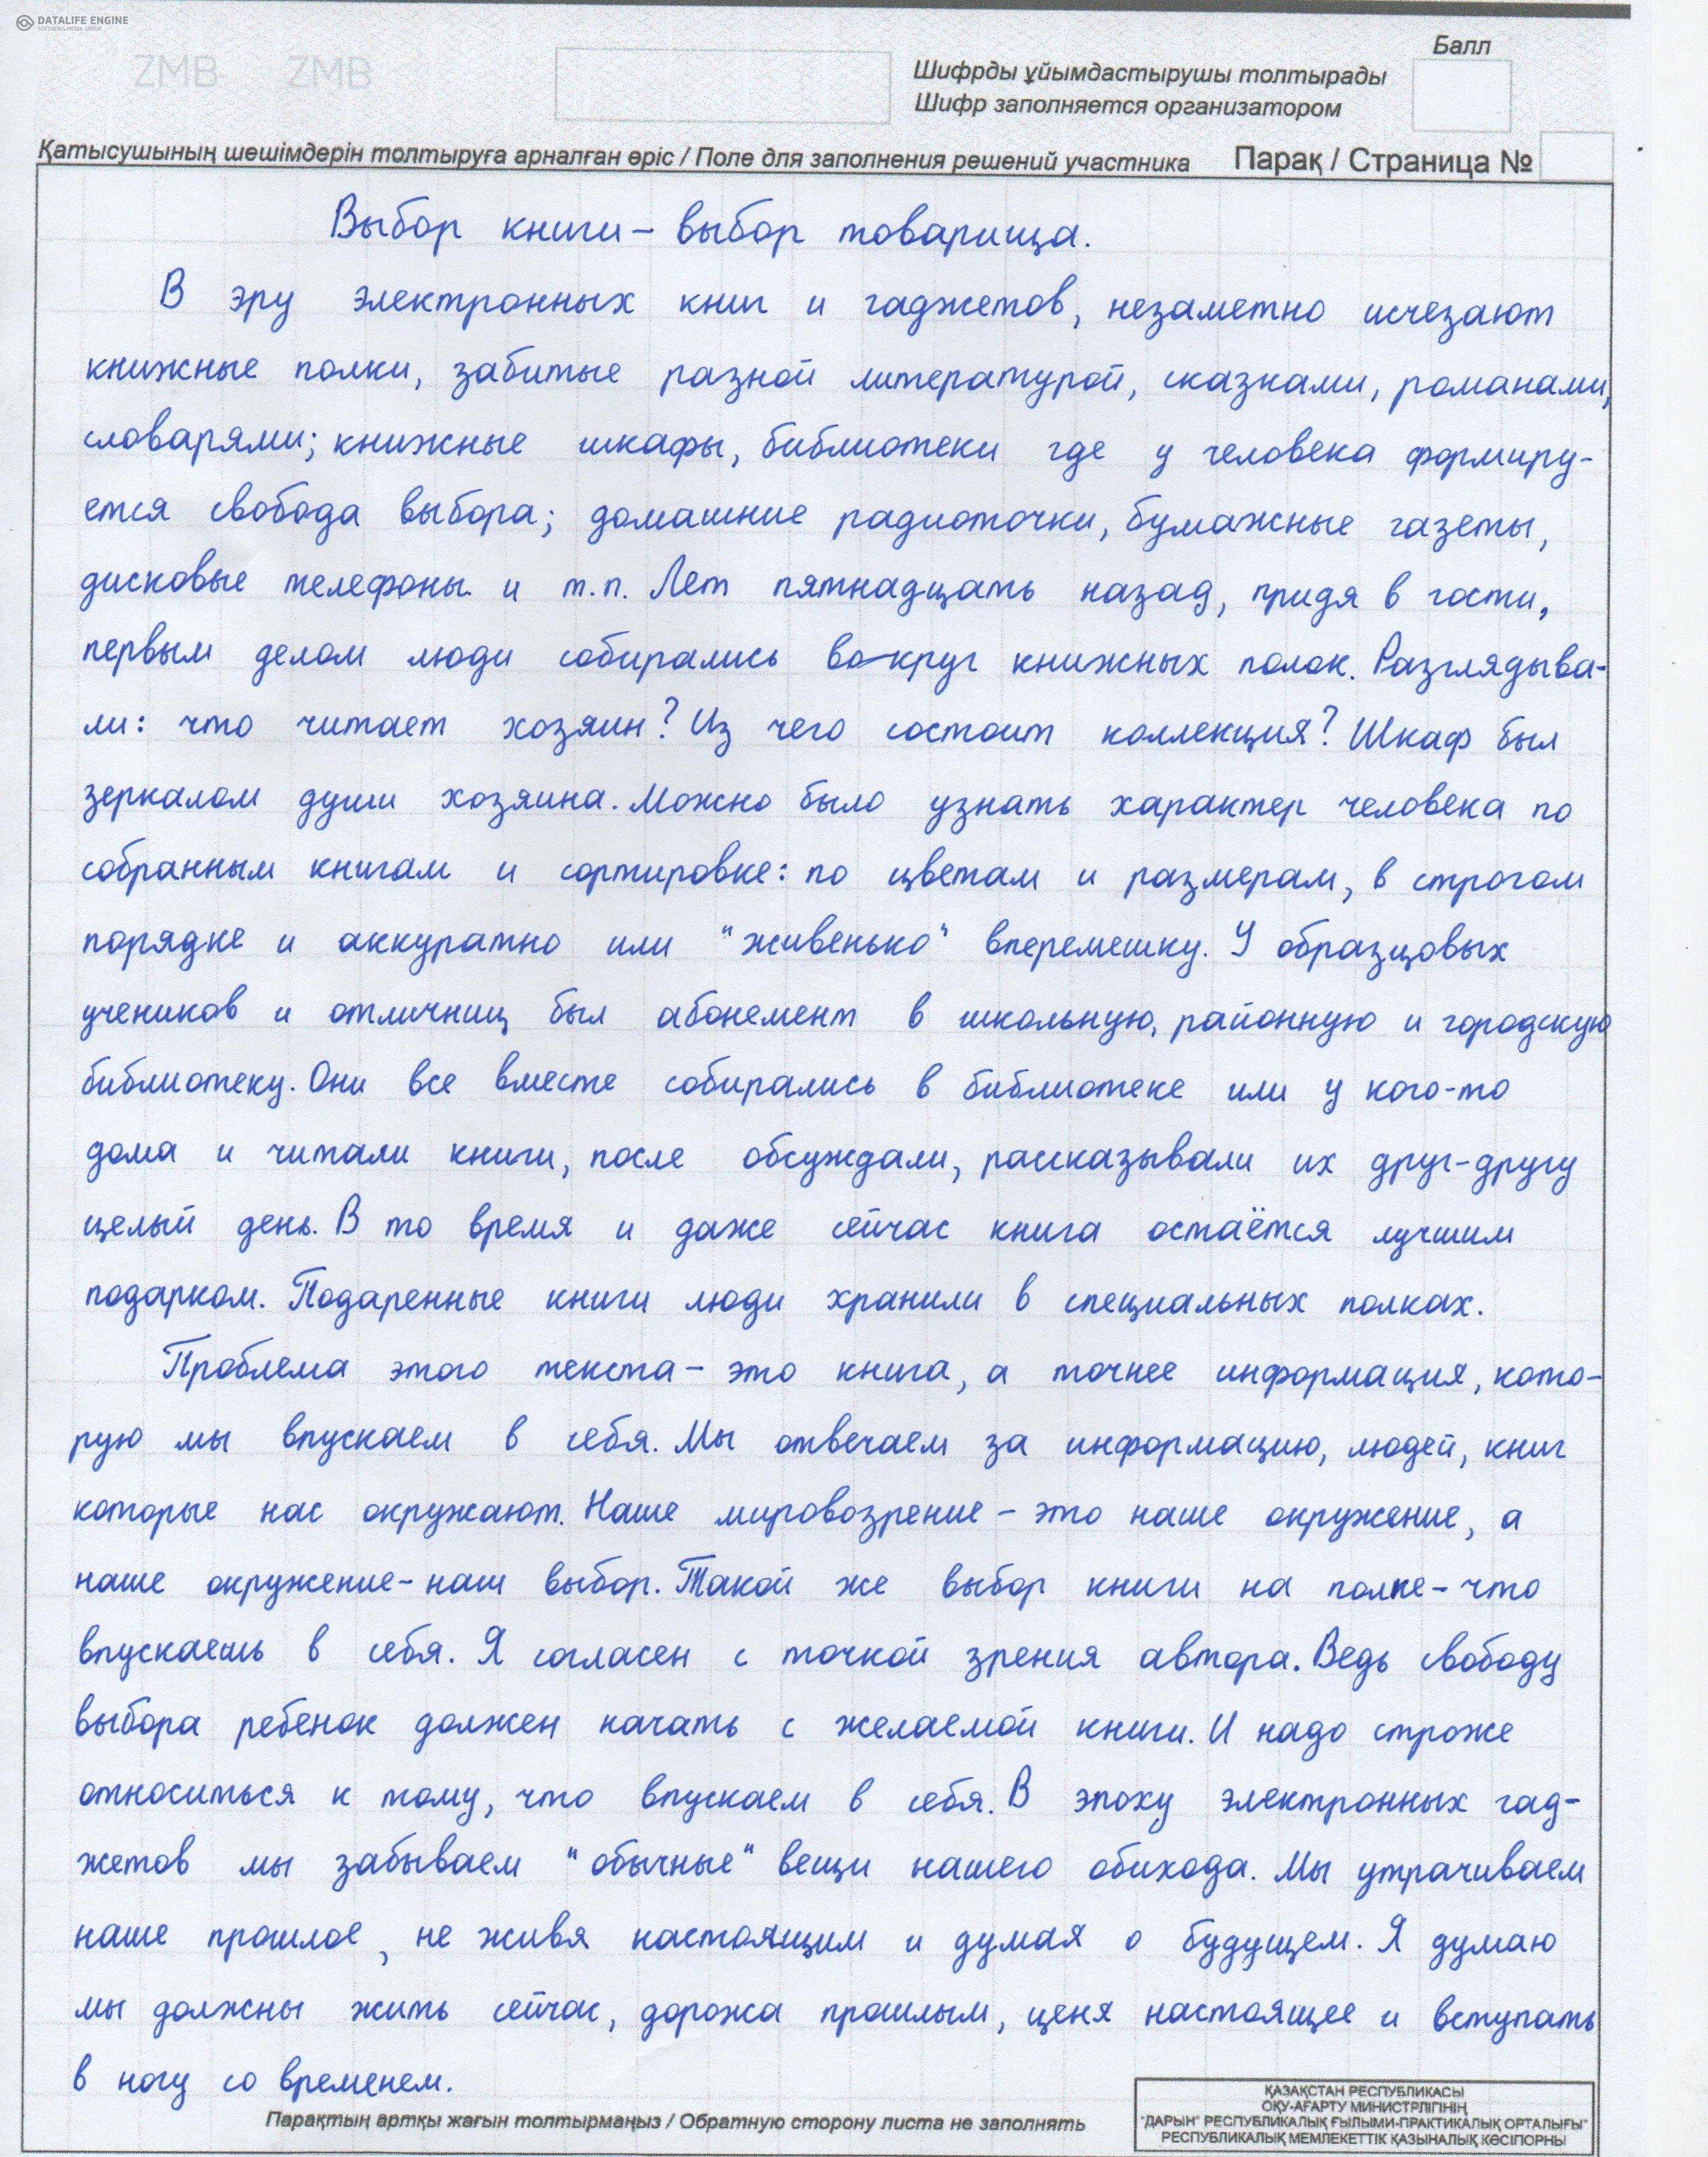 DATALIFE ENGINE
SOFTNEWS MEDIA GROUP
ZMB ZMB
Балл
Шифрды ұйымдастырушы толтырады
Шифр заполняется организатором
Қатысушының шешімдерін толтыруға арналған өріс / Поле для заполнения решений участника Парақ / Страница №
Выбор книги – выбор товарища.
В эру электронных книг и гаджетов, незаметно исчезают
книжные полки, забитые разной литературой, сказками, романами,
словарями; книжные шкафы, библиотеки где у человека формиру-
ется свобода выбора; домашние радиоточки, бумажные газеты,
дисковые телефоны и т.п. Лет пятнадцать назад, придя в гости,
первым делом люди собирались вокруг книжных полок. Разглядыва-
ли: что читает хозяин? Из чего состоит коллекция? Шкаф был
зеркалом души хозяина. Можно было узнать характер человека по
собранным книгам и сортировке: по цветам и размерам, в строгом
порядке и аккуратно или "живенько" вперемешку. У образцовых
учеников и отличниц был абонемент в школьную, районную и городскую
библиотеку. Они все вместе собирались в библиотеке или у кого-то
дома и читали книги, после обсуждали, рассказывали их друг-другу
целый день. В то время и даже сейчас книга остаётся лучшим
подарком. Подаренные книги люди хранили в специальных полках.
Проблема этого текста – это книга, а точнее информация, кото-
рую мы впускаем в себя. Мы отвечаем за информацию, людей, книг
которые нас окружают. Наше мировозрение – это наше окружение, а
наше окружение – наш выбор. Такой же выбор книги на полке – что
впускаешь в себя. Я согласен с точкой зрения автора. Ведь свободу
выбора ребенок должен начать с желаемой книги. И надо строже
относиться к тому, что впускаем в себя. В эпоху электронных гад-
жетов мы забываем "обычные" вещи нашего обихода. Мы утрачиваем
наше прошлое, не живя настоящим и думая о будущем. Я думаю
мы должны жить сейчас, дорожа прошлым, ценя настоящее и вступать
в ногу со временем.
Парақтың артқы жағын толтырмаңыз / Обратную сторону листа не заполнять
ҚАЗАҚСТАН РЕСПУБЛИКАСЫ
ОҚУ-АҒАРТУ МИНИСТРЛІГІНІҢ
"ДАРЫН" РЕСПУБЛИКАЛЫҚ ҒЫЛЫМИ-ПРАКТИКАЛЫҚ ОРТАЛЫҒЫ"
РЕСПУБЛИКАЛЫҚ МЕМЛЕКЕТТІК ҚАЗЫНАЛЫҚ КӘСІПОРНЫ